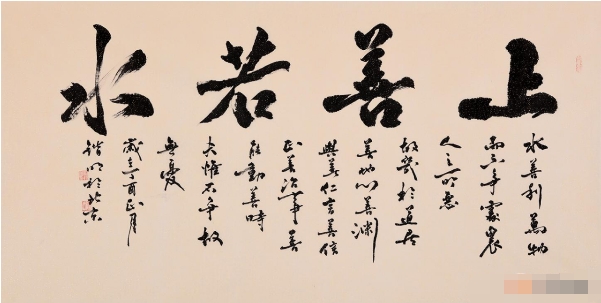 上善若水
水善利萬物
而不爭處衆
人之所惡
故幾於道居
善地心善渊
與善仁言善信
正善治事善
能動善時
夫惟不争故
無憂
歲在丁酉正月
於北京